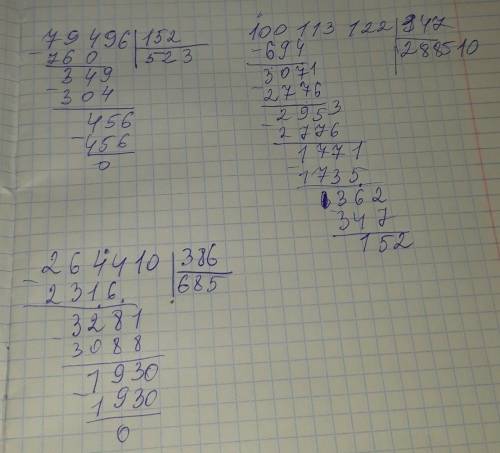 79496 152
- 760 523
349
- 304
456
- 456
0
100 113 122 347
- 694 288510
3071
- 2776
2953
- 2776
1771
- 1735
362
347
152
264410 386
- 2316 685
3281
- 3088
1930
- 1930
0